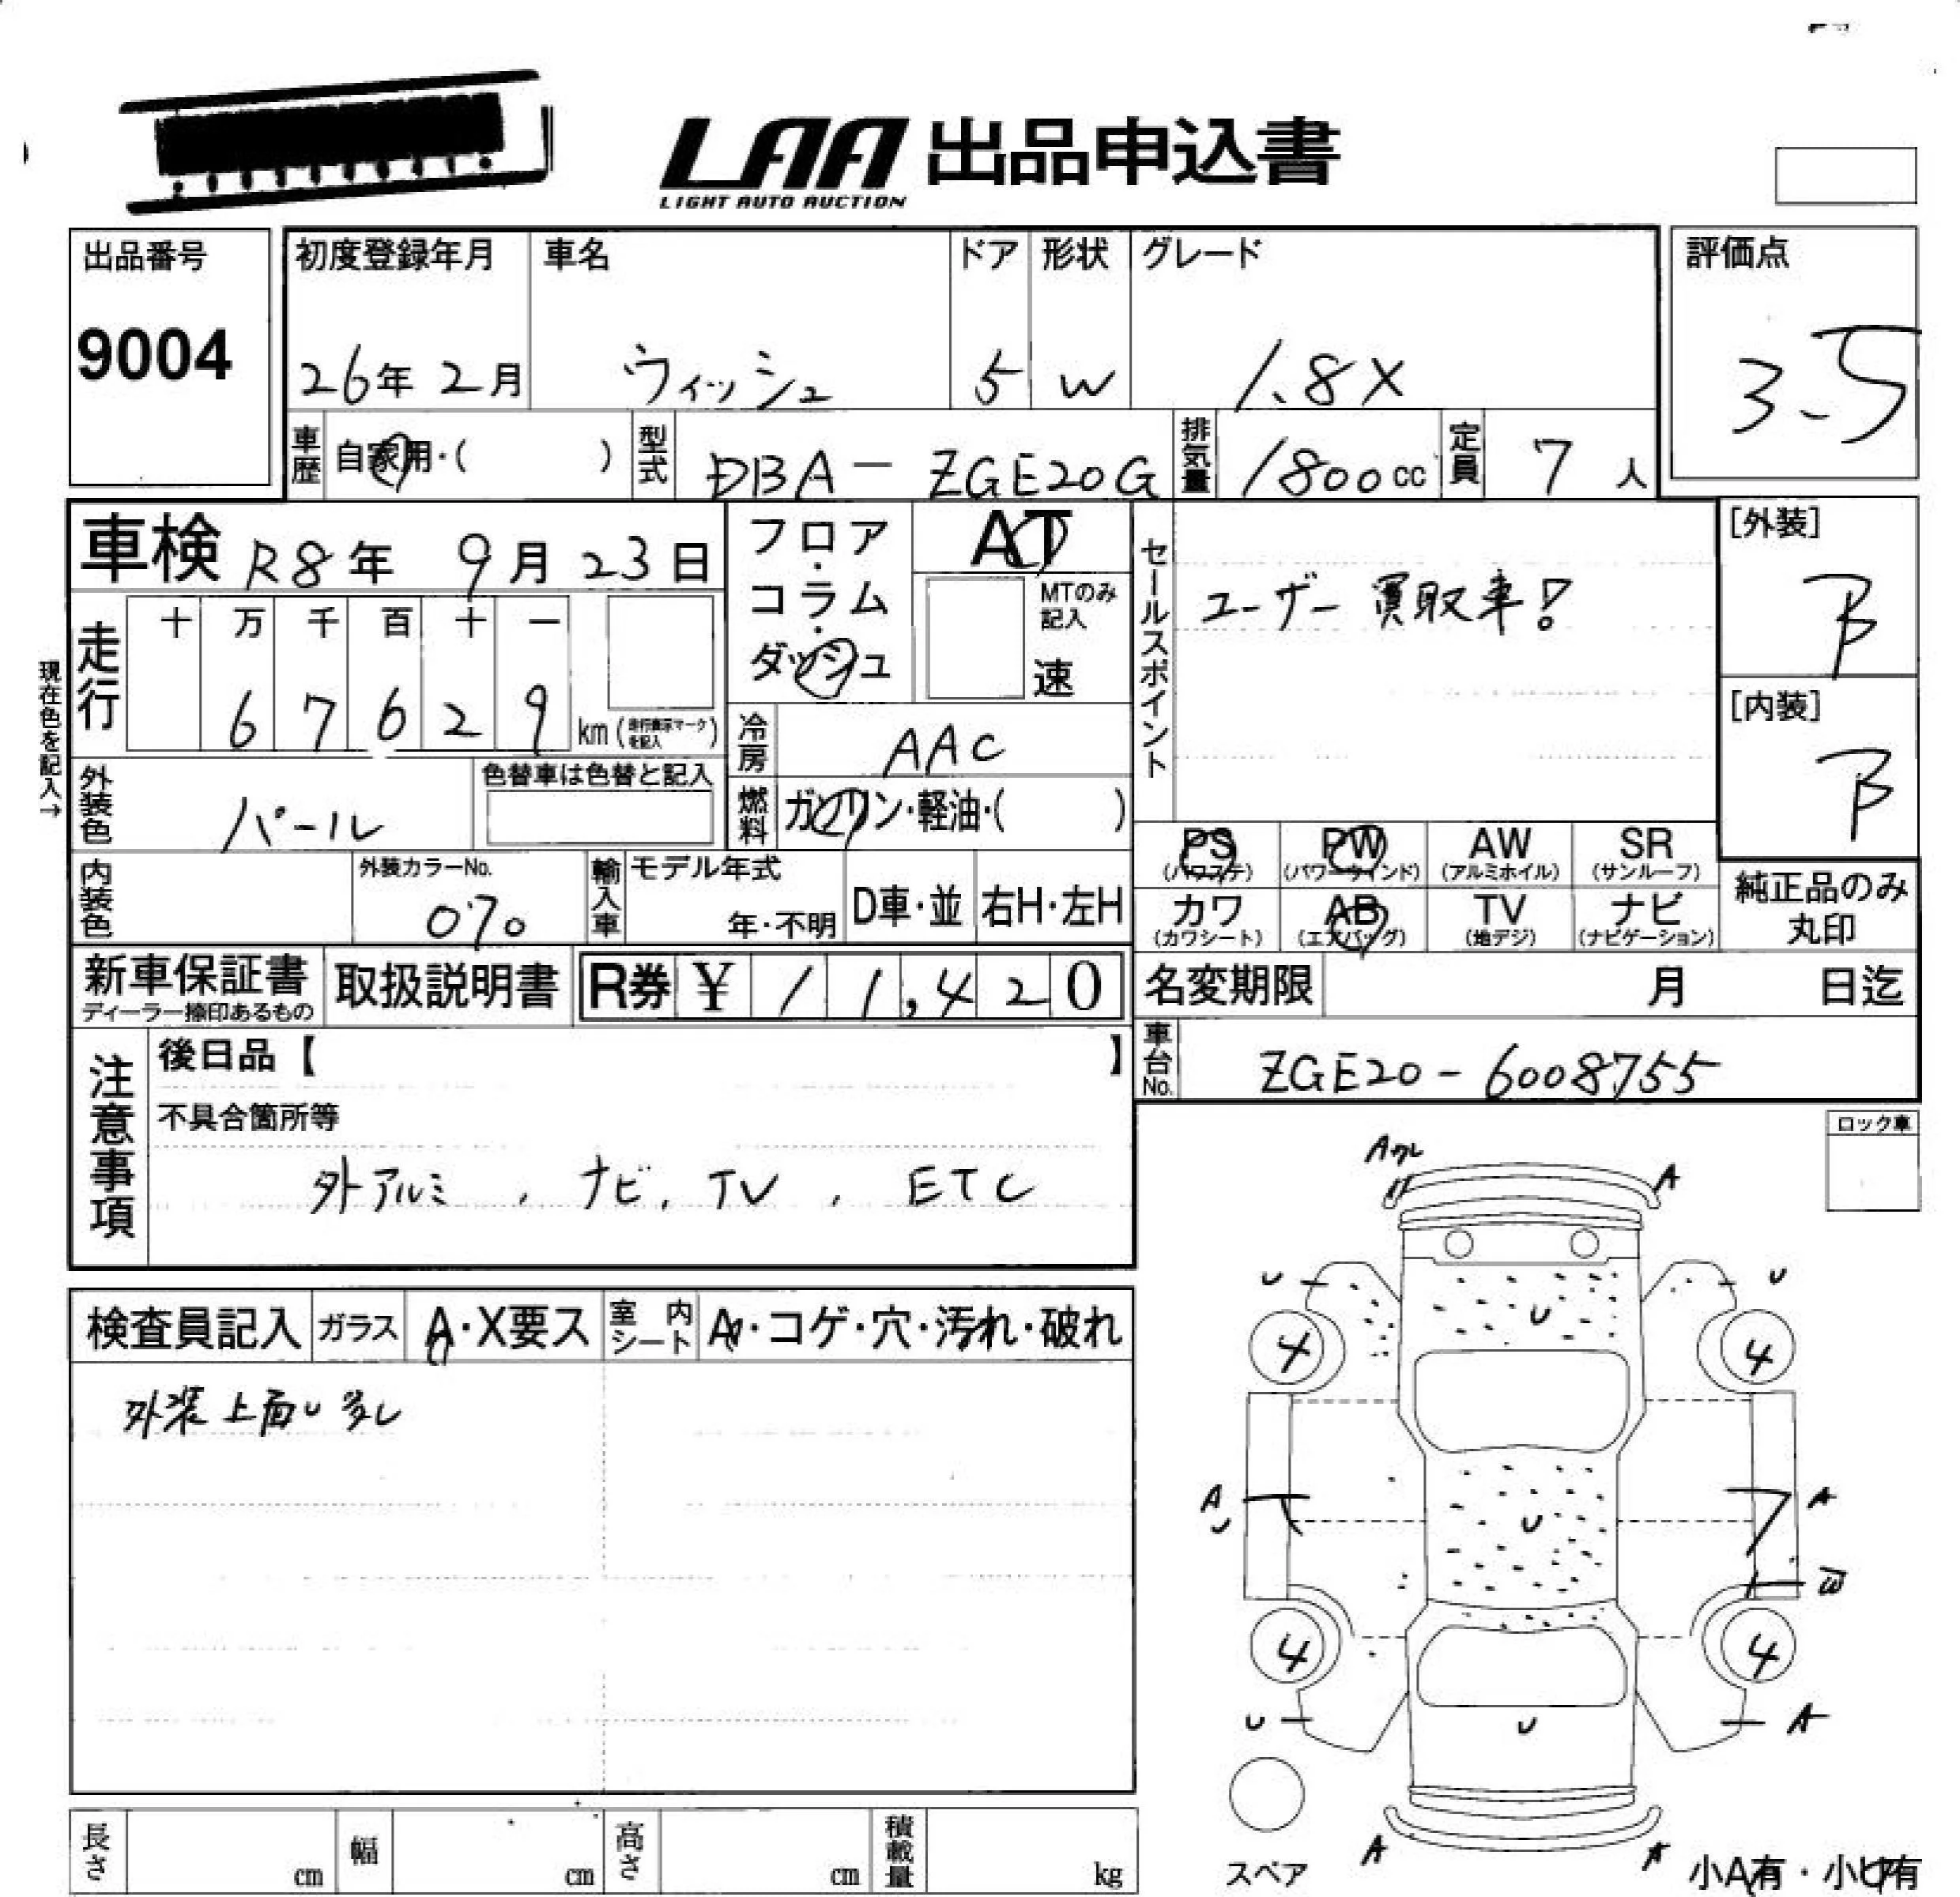 LAA 出品申込書
LIGHT AUTO AUCTION
出品番号
9004
初度登録年月 車名 ドア 形状 グレード
26年 2月 ウィッシュ 5 W 1.8X
評価点
3-5
車歴 自家用・( ) 型式 DBA-ZGE20G 排気量 1800cc 定員 7人
車検 R8年 9月 23日
フロア・コラム・ダッシュ
AT
MTのみ記入
速
セールスポイント
ユーザー買取車!
[外装]
B
[内装]
B
現在色を記入→
走行
十 万 千 百 十 一
6 7 6 2 9 km (走行表示マークを記入)
冷房 AAC
外装色 パール
色替車は色替と記入
燃料 ガソリン・軽油・( )
内装色
外装カラーNo.
070
輸入車 モデル年式
年・不明 D車・並 右H・左H
PS PW AW SR
(パワステ) (パワーウインド) (アルミホイル) (サンルーフ)
カワ AB TV ナビ
(カワシート) (エアバッグ) (地デジ) (ナビゲーション)
純正品のみ
丸印
新車保証書 取扱説明書 R券 ¥ 11,420
ディーラー捺印あるもの
名変期限 月 日迄
車台No. ZGE20-6008755
注意事項
後日品【 】
不具合箇所等
外アルミ, ナビ, TV, ETC
ロック車
検査員記入 ガラス A・X要ス 室内シート A・コゲ・穴・汚れ・破れ
外装上面U多し
A A
U U
U
4 4
A U A
U
W
4 4
U U A
A A
スペア
小A有・小U有
長さ cm 幅 cm 高さ cm 積載量 kg